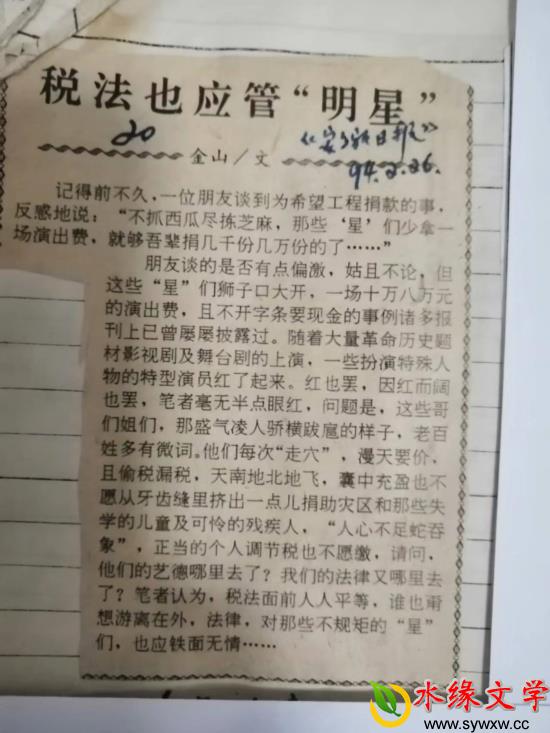 税法也应管“明星”
20
《安乡报》
金山／文
94.2.26.
记得前不久，一位朋友谈到为希望工程捐款的事，
反感地说：“不抓西瓜尽拣芝麻，那些‘星’们少拿一
场演出费，就够吾辈捐几千份几万份的了……”
朋友谈的是否有点偏激，姑且不论，但
这些“星”们狮子口大开，一场十万八万元
的演出费，且不开字条要现金的事例诸多报
刊上已曾屡屡披露过。随着大量革命历史题
材影视剧及舞台剧的上演，一些扮演特殊人
物的特型演员红了起来。红也罢，因红而阔
也罢，笔者毫无半点眼红，问题是，这些哥
们姐们，那盛气凌人骄横跋扈的样子，老百
姓多有微词。他们每次“走穴”，漫天要价，
且偷税漏税，天南地北地飞，囊中充盈也不
愿从牙齿缝里挤出一点儿捐助灾区和那些失
学的儿童及可怜的残疾人，“人心不足蛇吞
象”，正当的个人调节税也不愿缴，请问，
他们的艺德哪里去了？我们的法律又哪里去
了？笔者认为，税法面前人人平等，谁也甭
想游离在外，法律，对那些不规矩的“星”
们，也应铁面无情……
水缘文学
www.sywxw.cc